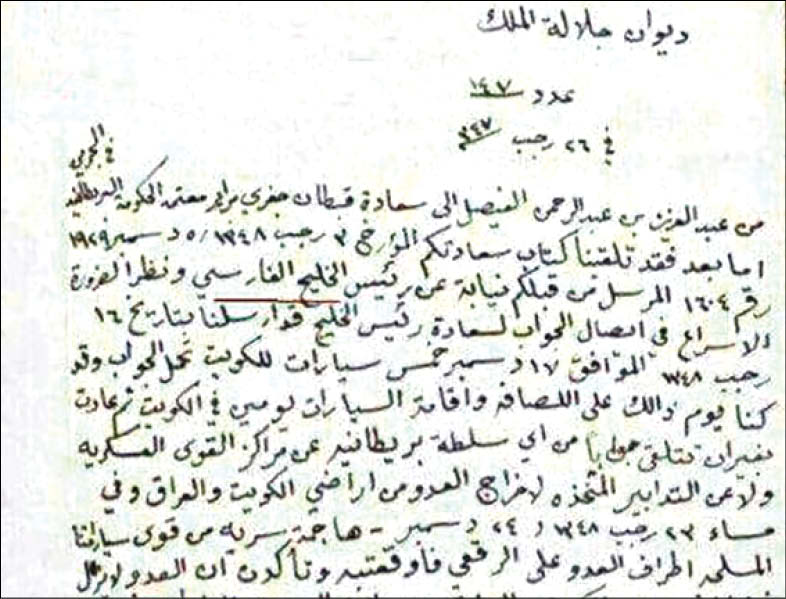 ديوان جلالة الملك
عدد ١٤٧
في ٢٦ رجب
في الجرمي
من عبد العزيز بن عبد الرحمن الفيصل الى سعادة قبطان جفري معتمد الحكومة البريطانية
اما بعد فقد تلقينا كتاب سعادتكم المؤرخ ٣ رجب ١٣٤٨ / ٥ دسمبر ١٩٢٩
رقم ١٦٠٤ المرسل من قبلكم نيابة عن رئيس الخليج الفارسي ونظرا لضرورة
الاسراع في ايصال الجواب لسعادة رئيس الخليج قد ارسلنا بتاريخ ١٦
رجب ١٣٤٨ الموافق ١٧ دسمبر خمس سيارات للكويت تحمل الجواب وقد
كنا يوم ذالك على اللصافه واقامة السيارات يومين في الكويت ثم عادت
بغير ان تتلقى جوابا من اي سلطة بريطانيه عن مراكز القوى العسكريه
ولا عن التدابير المتخذه لاخراج العدو من اراضي الكويت والعراق وفي
مساء ٢٣ رجب ١٣٤٨ / ٢٤ دسمبر هاجمة سريه من قوى سياراتنا
المسلحه اطراف العدو على الرقعي فاوقعتبه وتأكدن ان العدو